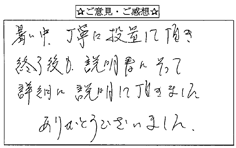 ☆ご意見・ご感想☆
暑い中、丁寧に設置して頂き
終了後も説明書にそって
詳細に説明して頂きました
ありがとうございました。